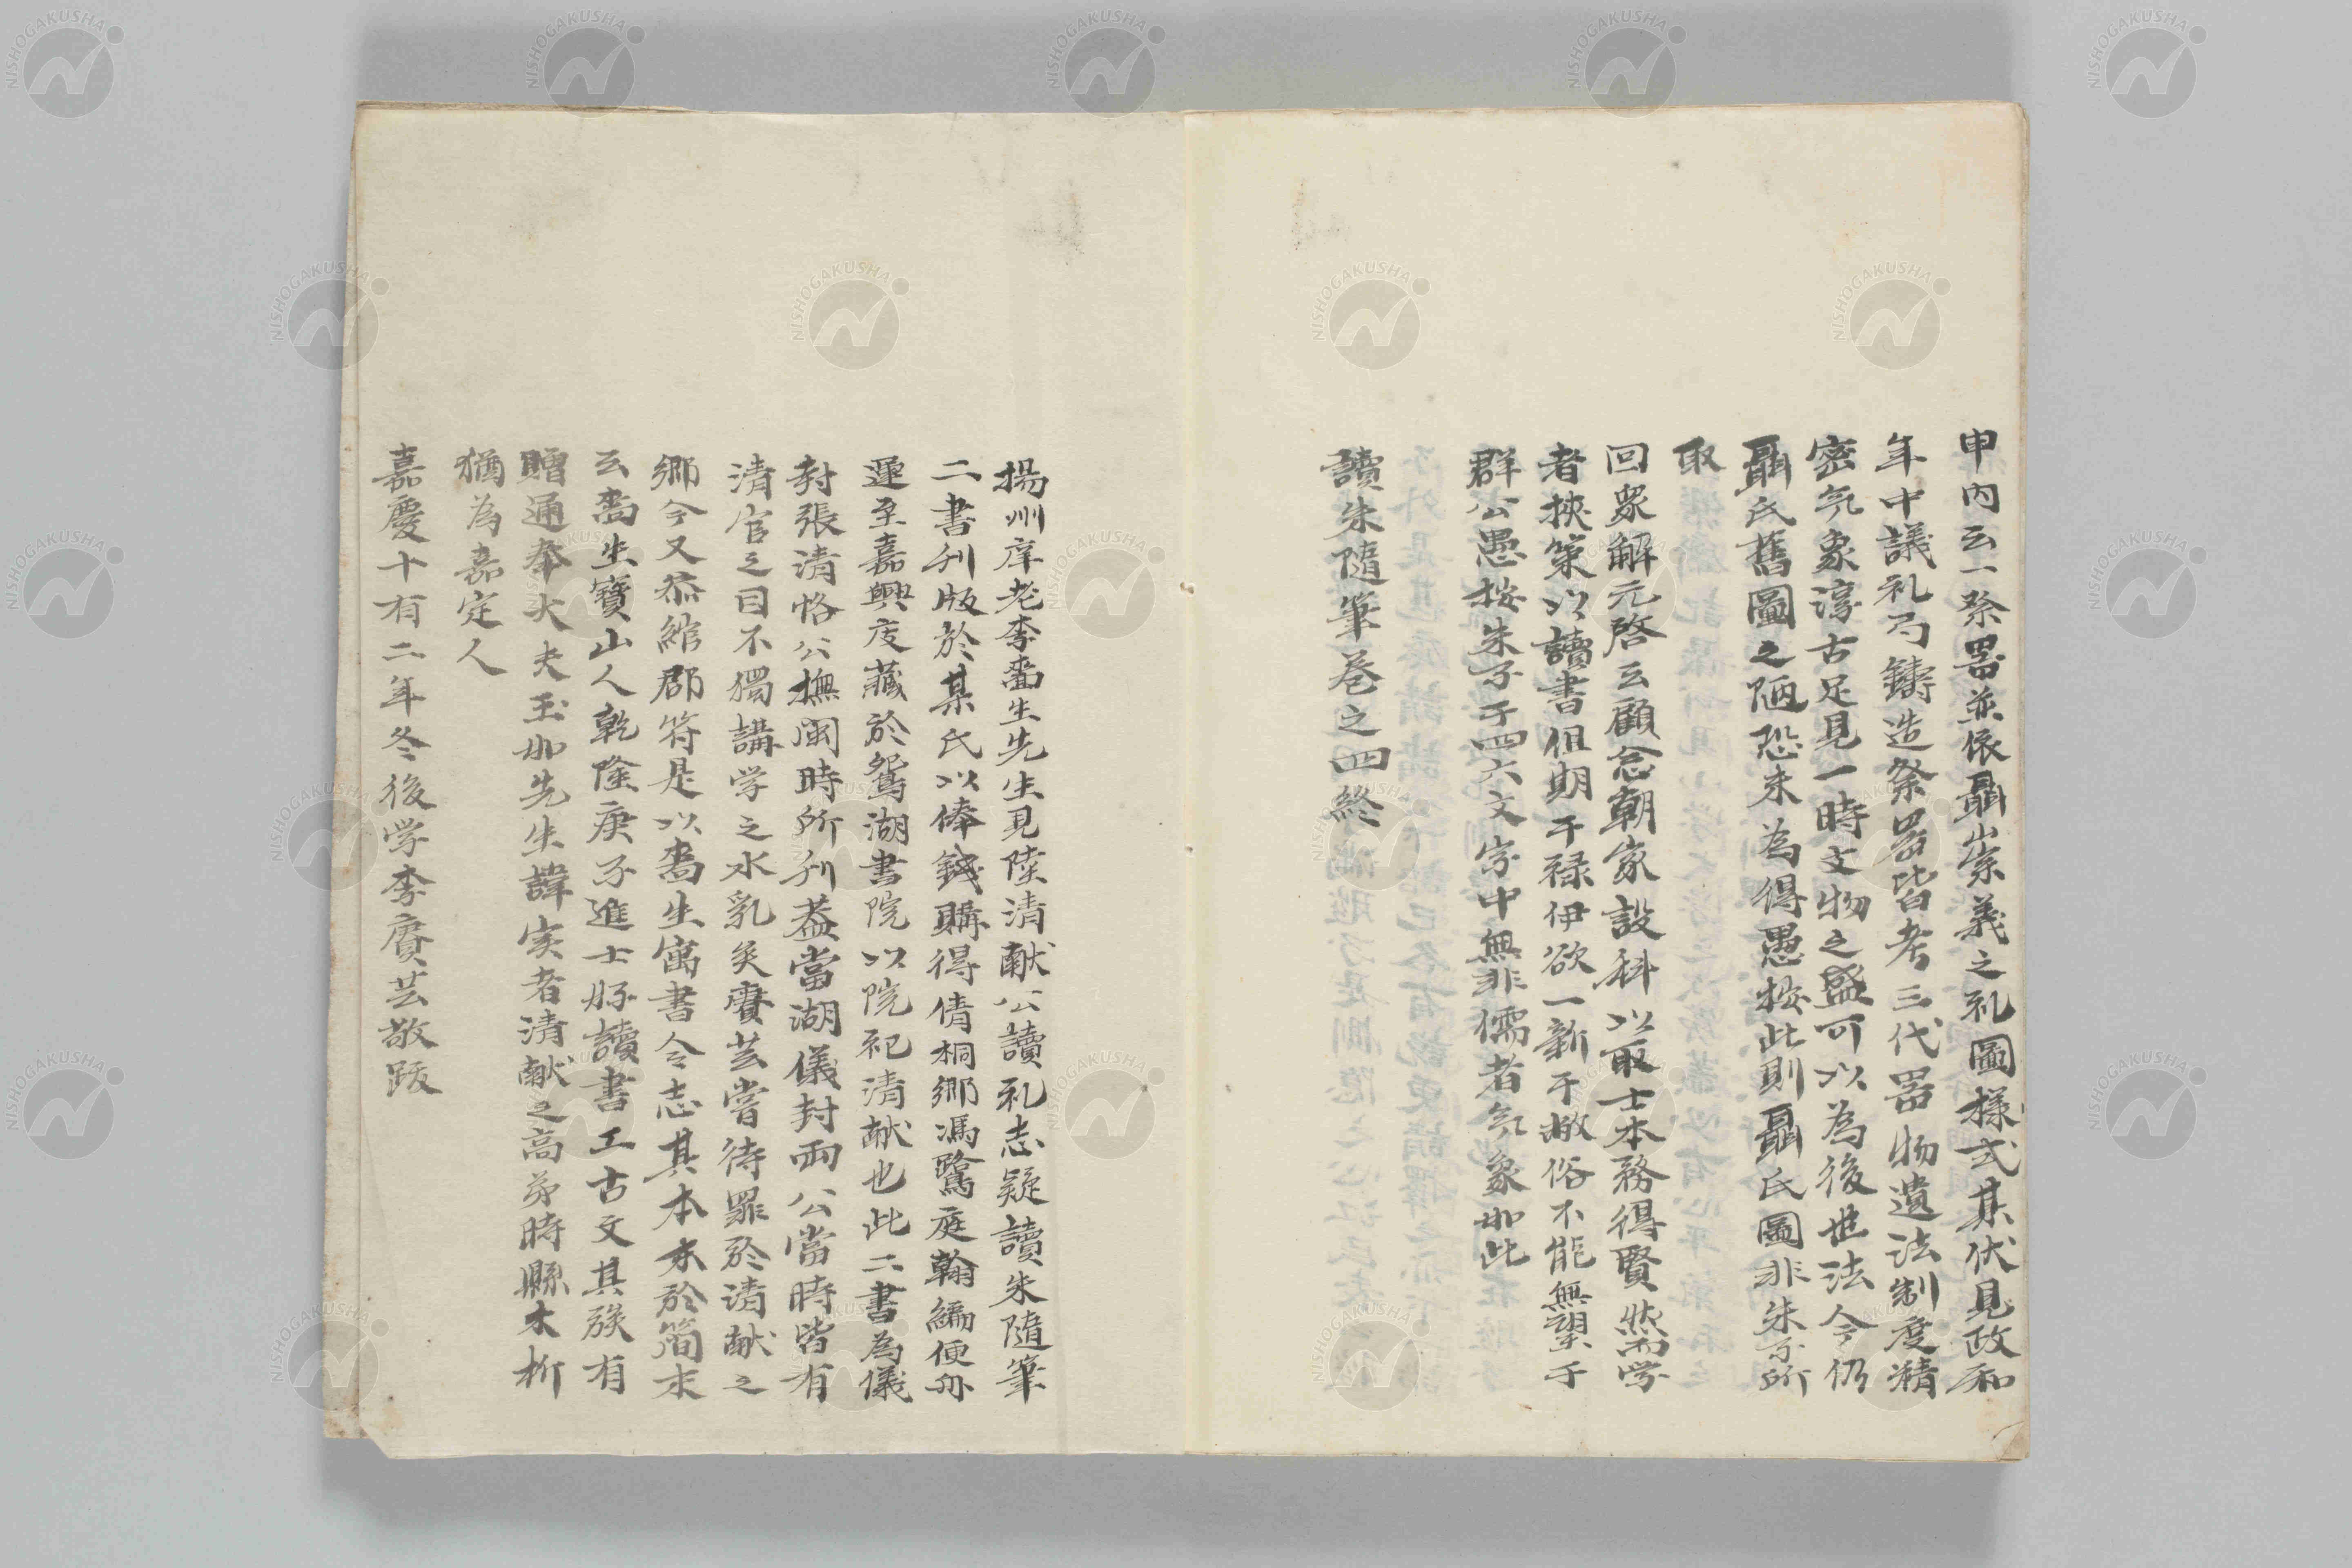 申内云一祭器並依聶崇義之礼圖樣式其伏見政和
年中議礼局鑄造祭器皆考三代器物遺法制度精
密气象淳古足見一時文物之盛可以為後世法今仍
聶氏舊圖之陋恐未為得愚按此則聶氏圖非朱子所
取
回衆解元啓云顧念朝家設科以取士本務得賢然而学
者挾策以讀書但期干禄伊欲一新于敝俗不能無望于
群公愚按朱子于四六文字中無非儒者气象如此
讀朱隨筆卷之四終
揚州庠老李嗇生先生見陸清献公讀礼志疑讀朱隨筆
二書刋版於某氏以俸錢購得倩桐郷馮鷺庭翰編便舟
遞至嘉興庋藏於鴛湖書院以院祀清献也此二書為儀
封張清恪公撫閩時所刋葢當湖儀封両公當時皆有
清官之目不獨講学之水乳矣賡芸嘗待罪於清献之
郷今又忝綰郡符是以嗇生寓書令志其本末於簡末
云嗇生寶山人乾隆庚子進士好讀書工古文其族有
贈通奉大夫玉如先生諱実者清献之高弟時縣未析
猶為嘉定人
嘉慶十有二年冬後学李賡芸敬跋
NISHOGAKUSHA